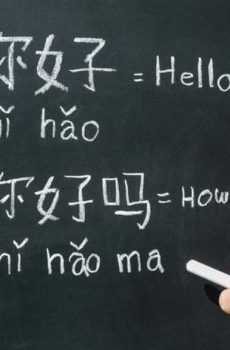 你好 = Hello
nǐ hǎo
你好吗 = How
nǐ hǎo ma